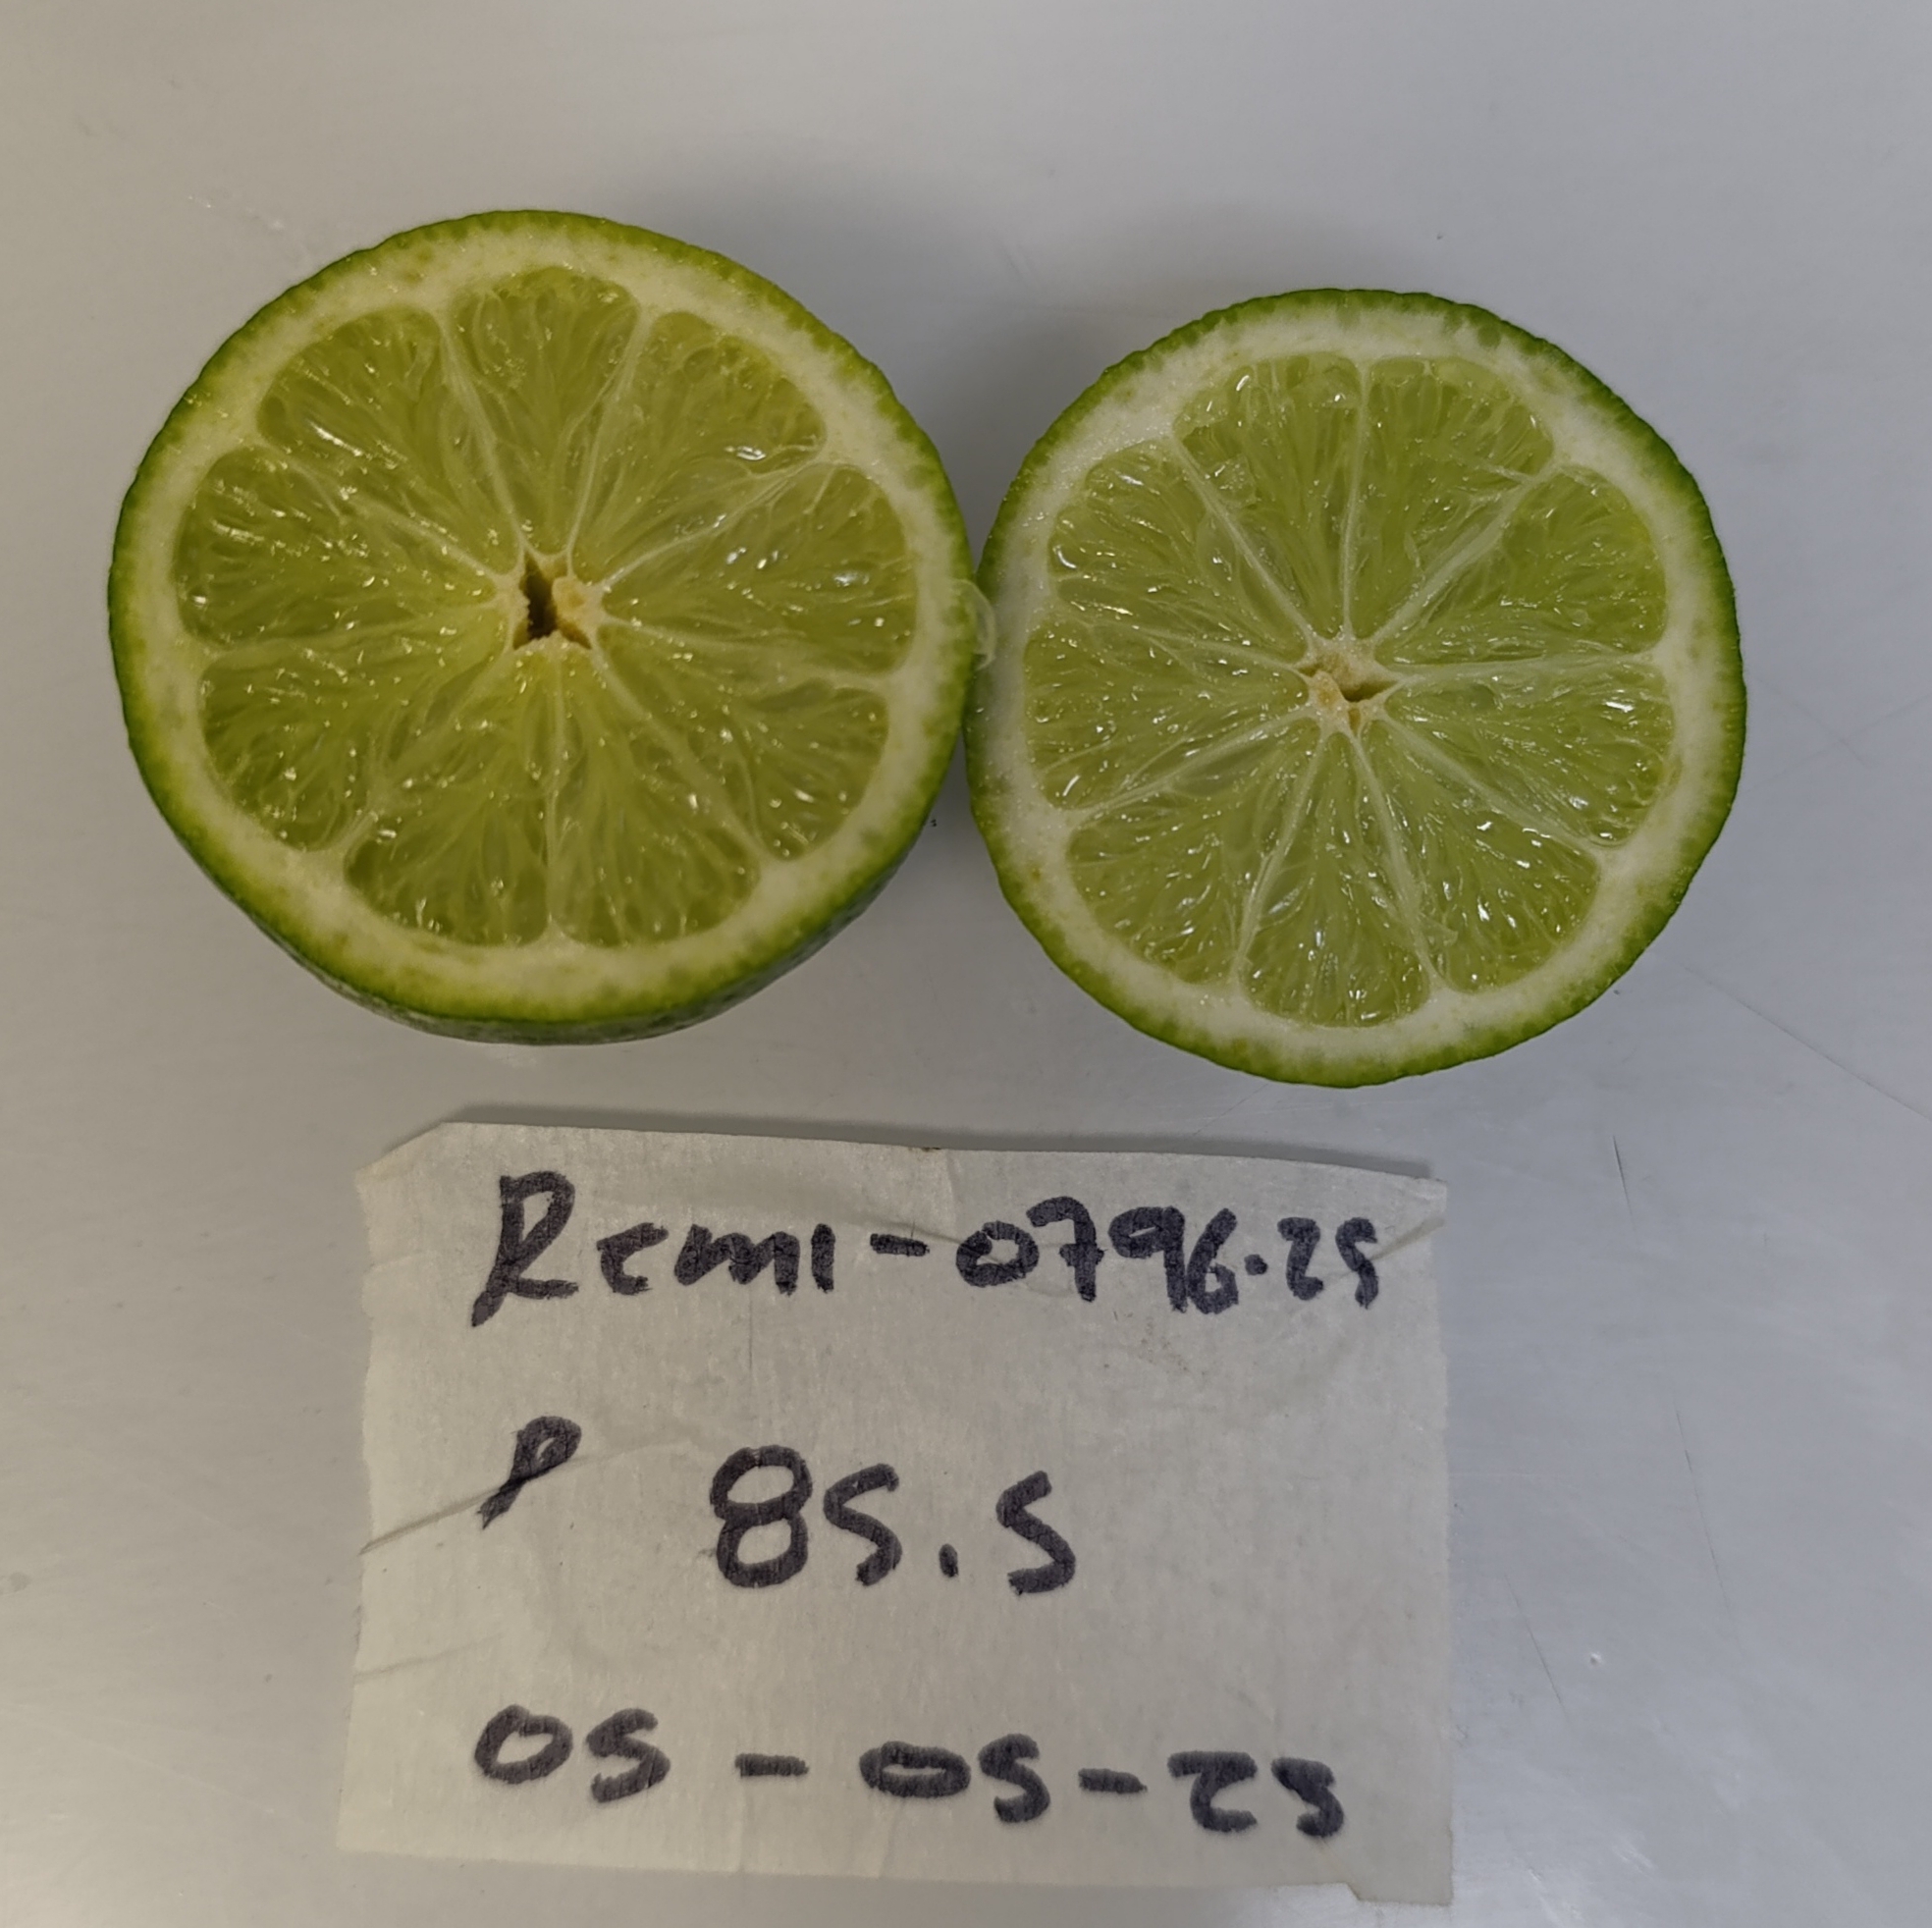 Remi-0796.25
P 85.5
05-05-25